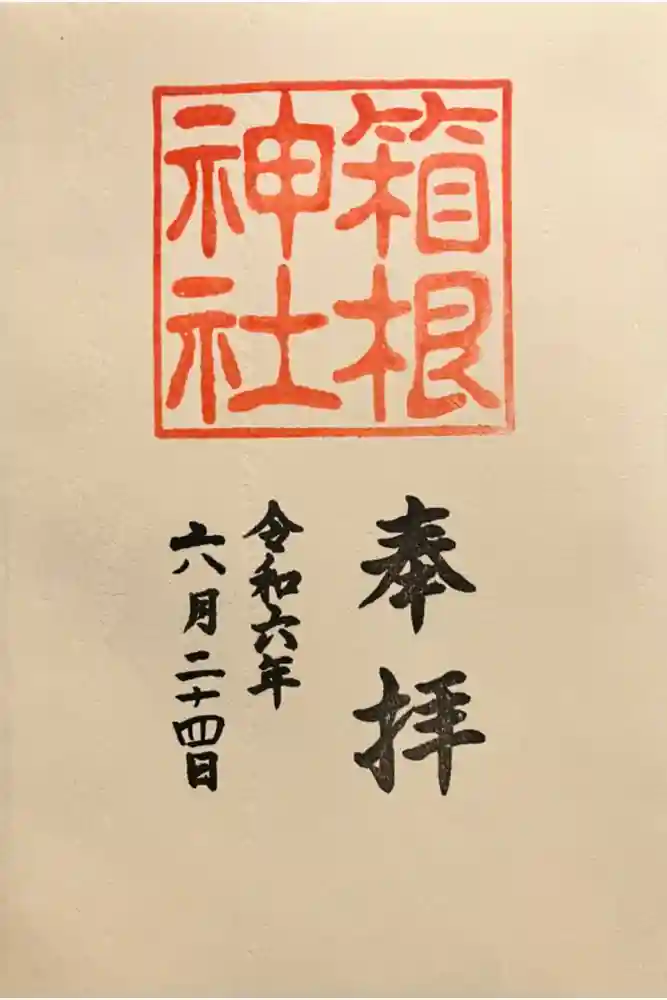 箱根
神社
奉拝
令和六年
六月二十四日